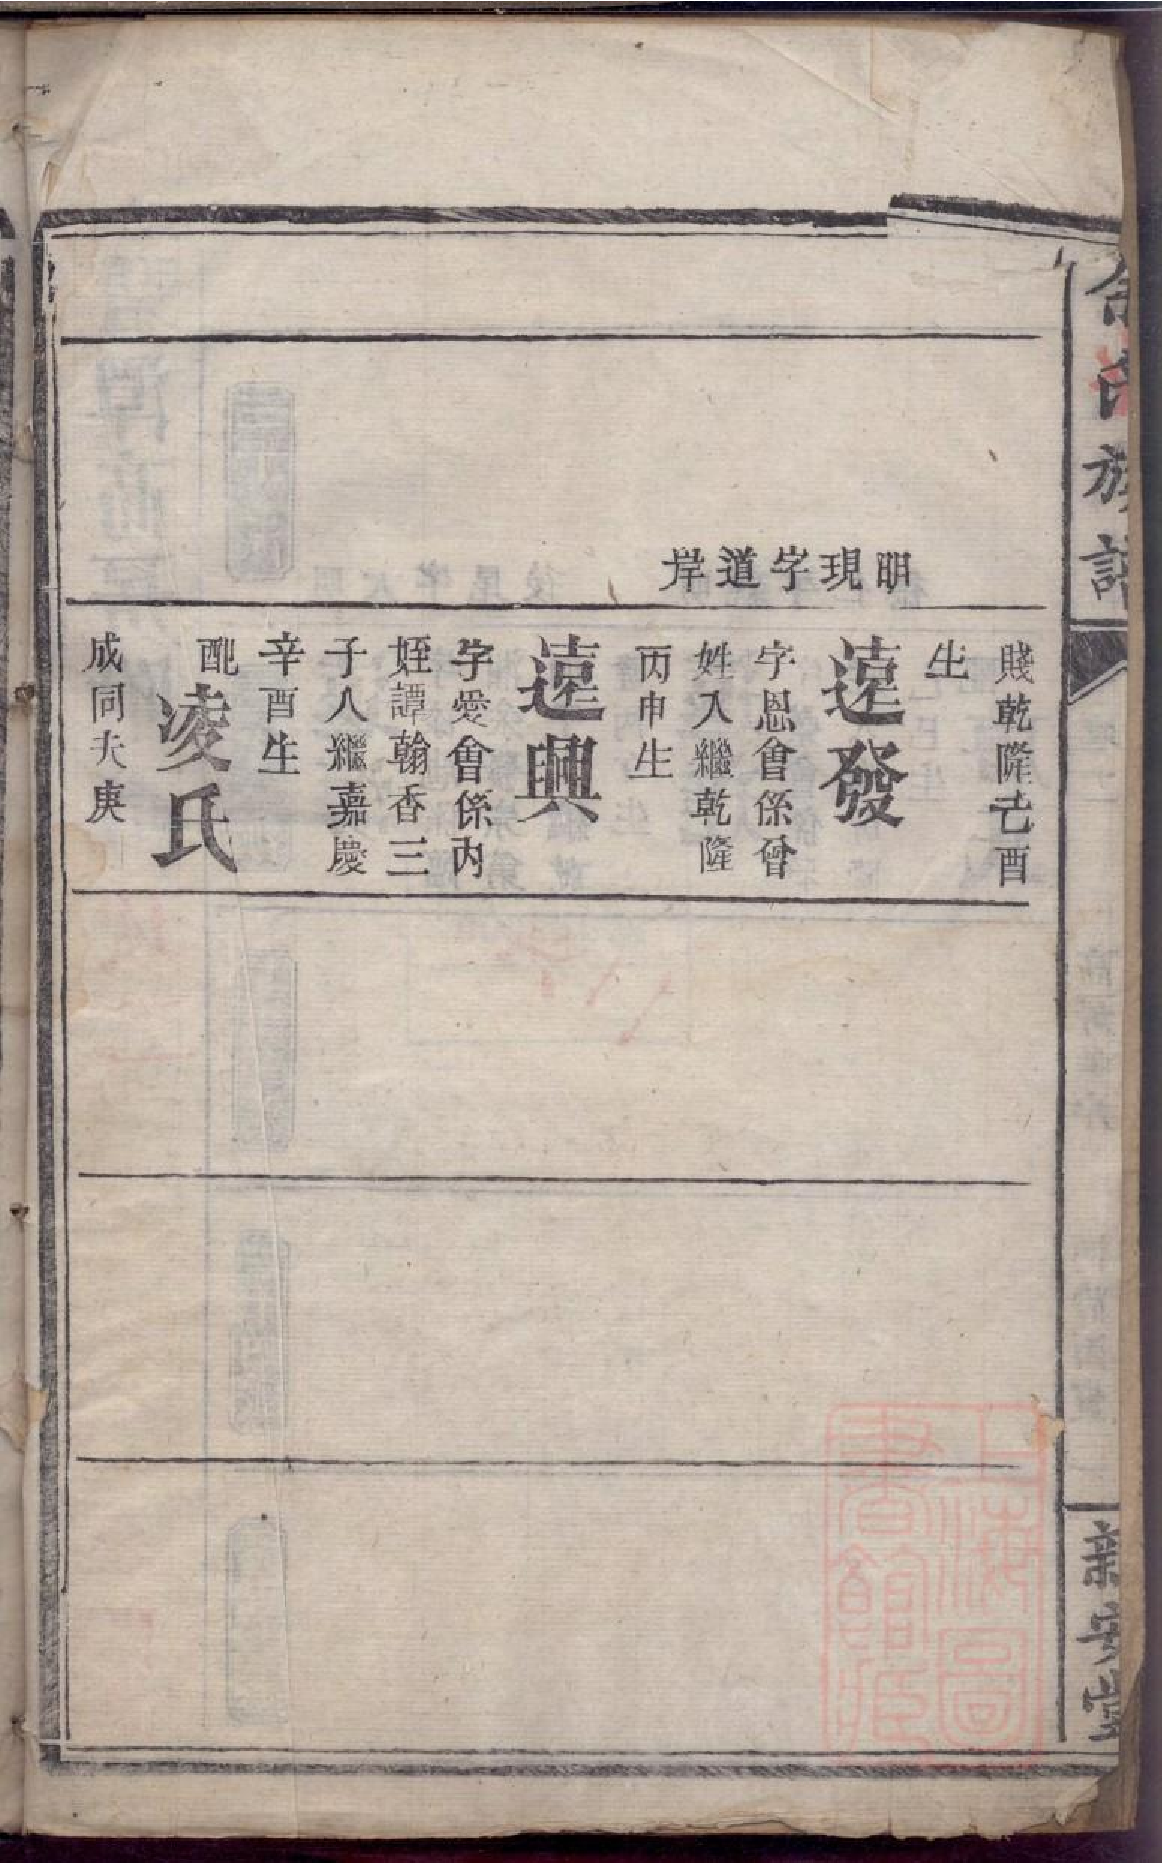 余氏族譜
新安堂
明現字道岸
賤乾隆己酉
生
遠發
字恩會係曾
姓入繼乾隆
丙申生
遠興
字愛會係內
姪譚翰香三
子入繼嘉慶
辛酉生
配凌氏
成同夫庚
上海圖
書館藏